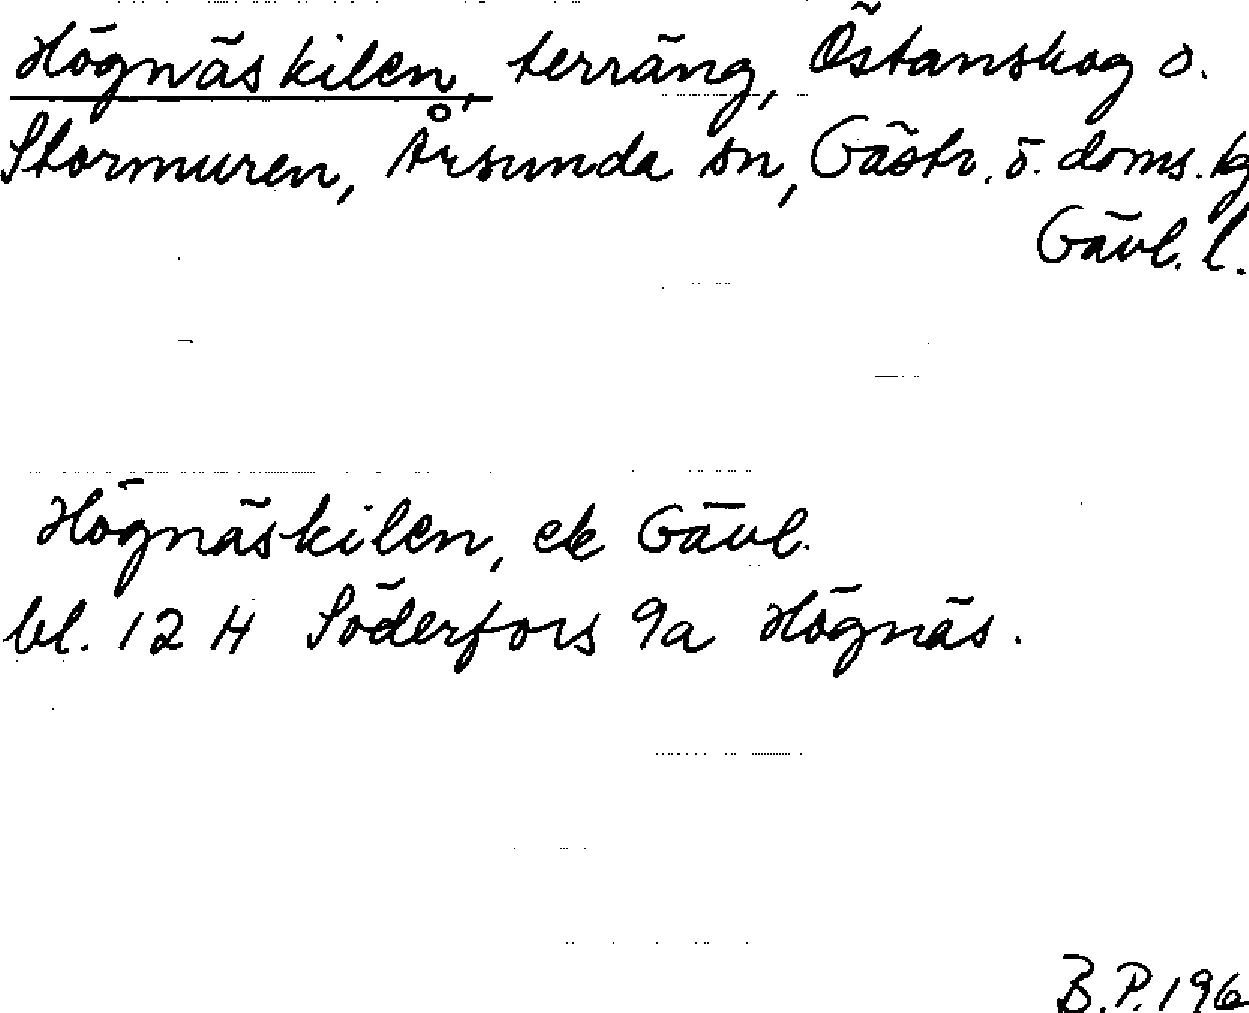 Högnäskilen, terräng, Östanskog o.
Stormuren, Årsunda sn, Gästr. ö. doms. kg
Gävl. l.
Högnäskilen, ek Gävl.
bl. 12 H Söderfors 9a Högnäs.
B.P. 196